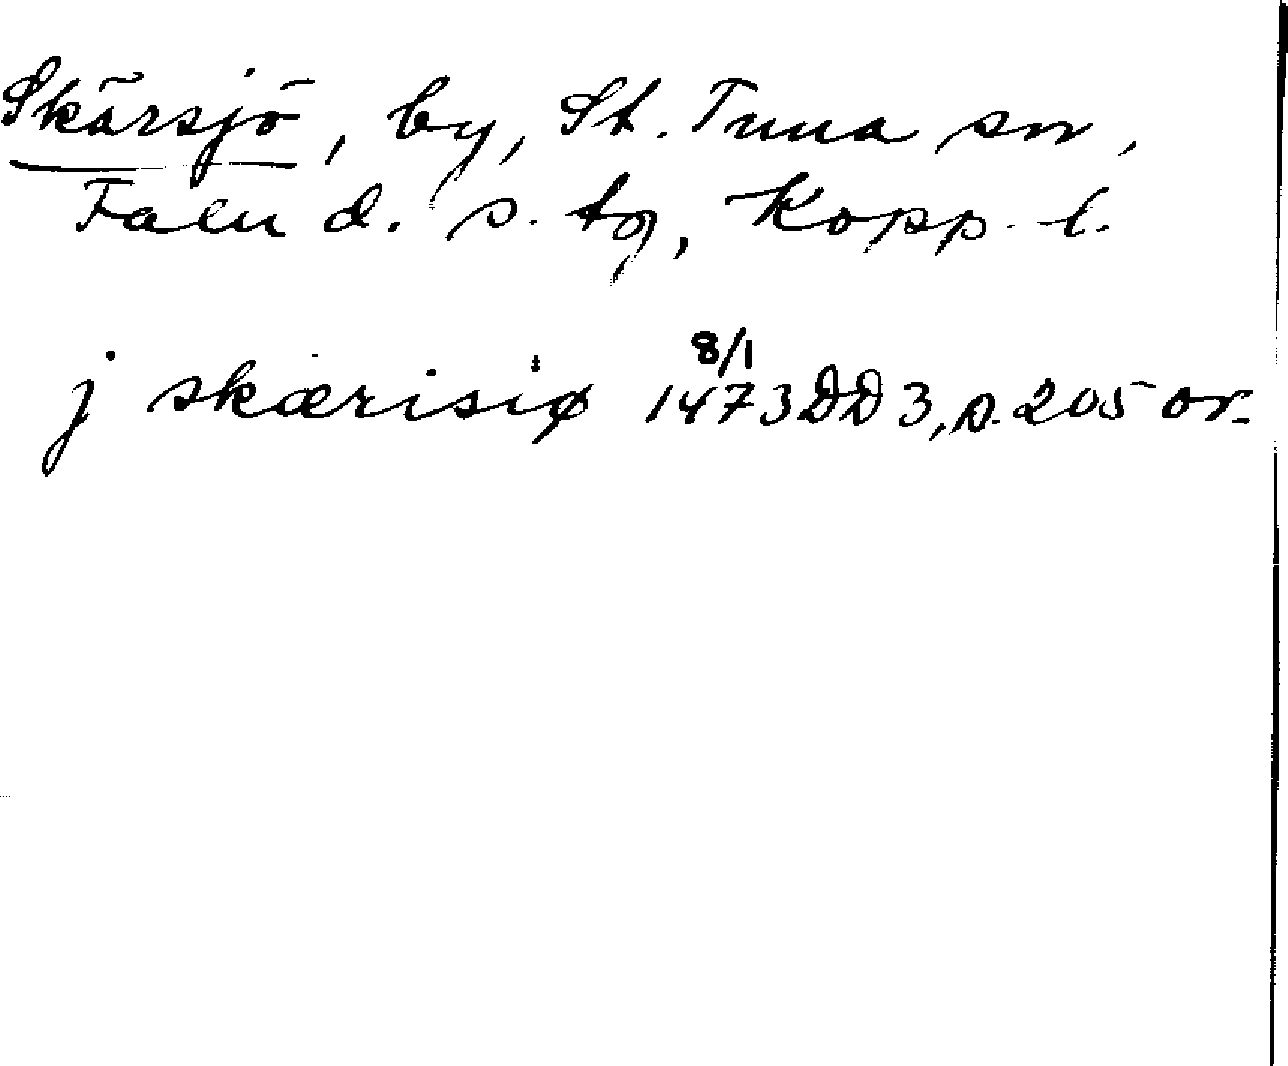 Skärsjö, by, St. Tuna sn,
Falu d. s. tg, Kopp. l.
j skærisiø 8/1 1473 DD 3, s. 205 or.